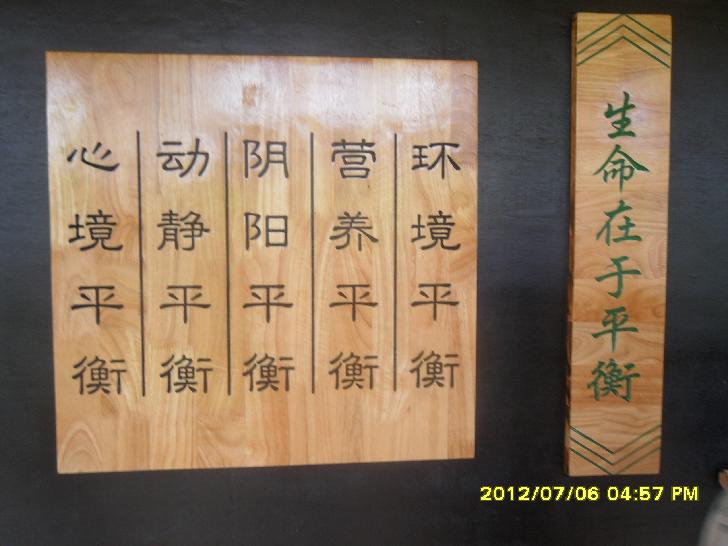 生命在于平衡
环境平衡
营养平衡
阴阳平衡
动静平衡
心境平衡
2012/07/06 04:57 PM